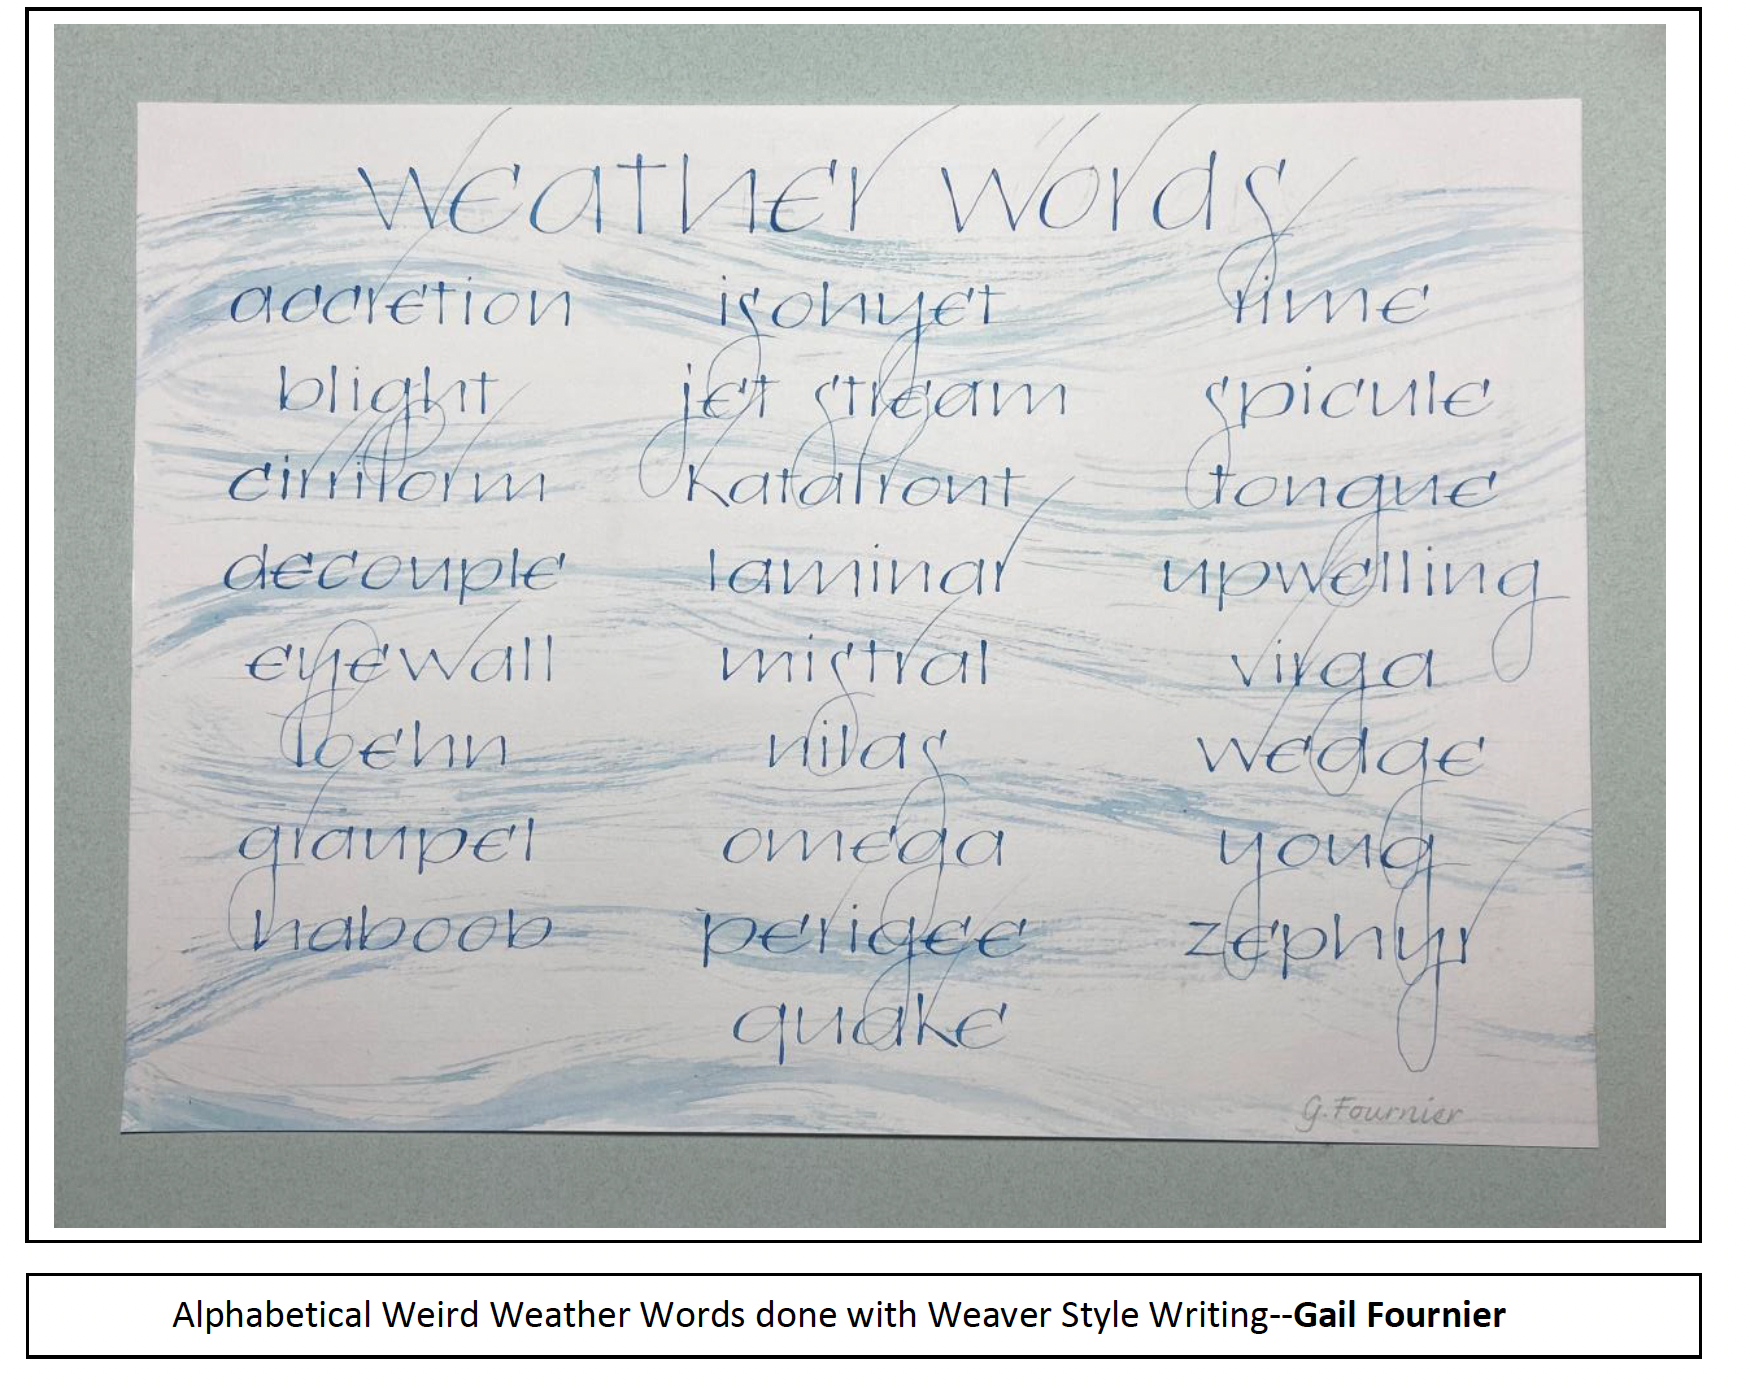 weather words
accretion
blight
cirriform
decouple
eyewall
foehn
graupel
haboob
isohyet
jet stream
katafront
laminar
mistral
nilas
omega
perigee
quake
rime
spicule
tongue
upwelling
virga
wedge
young
zephyr
G. Fournier
Alphabetical Weird Weather Words done with Weaver Style Writing--Gail Fournier